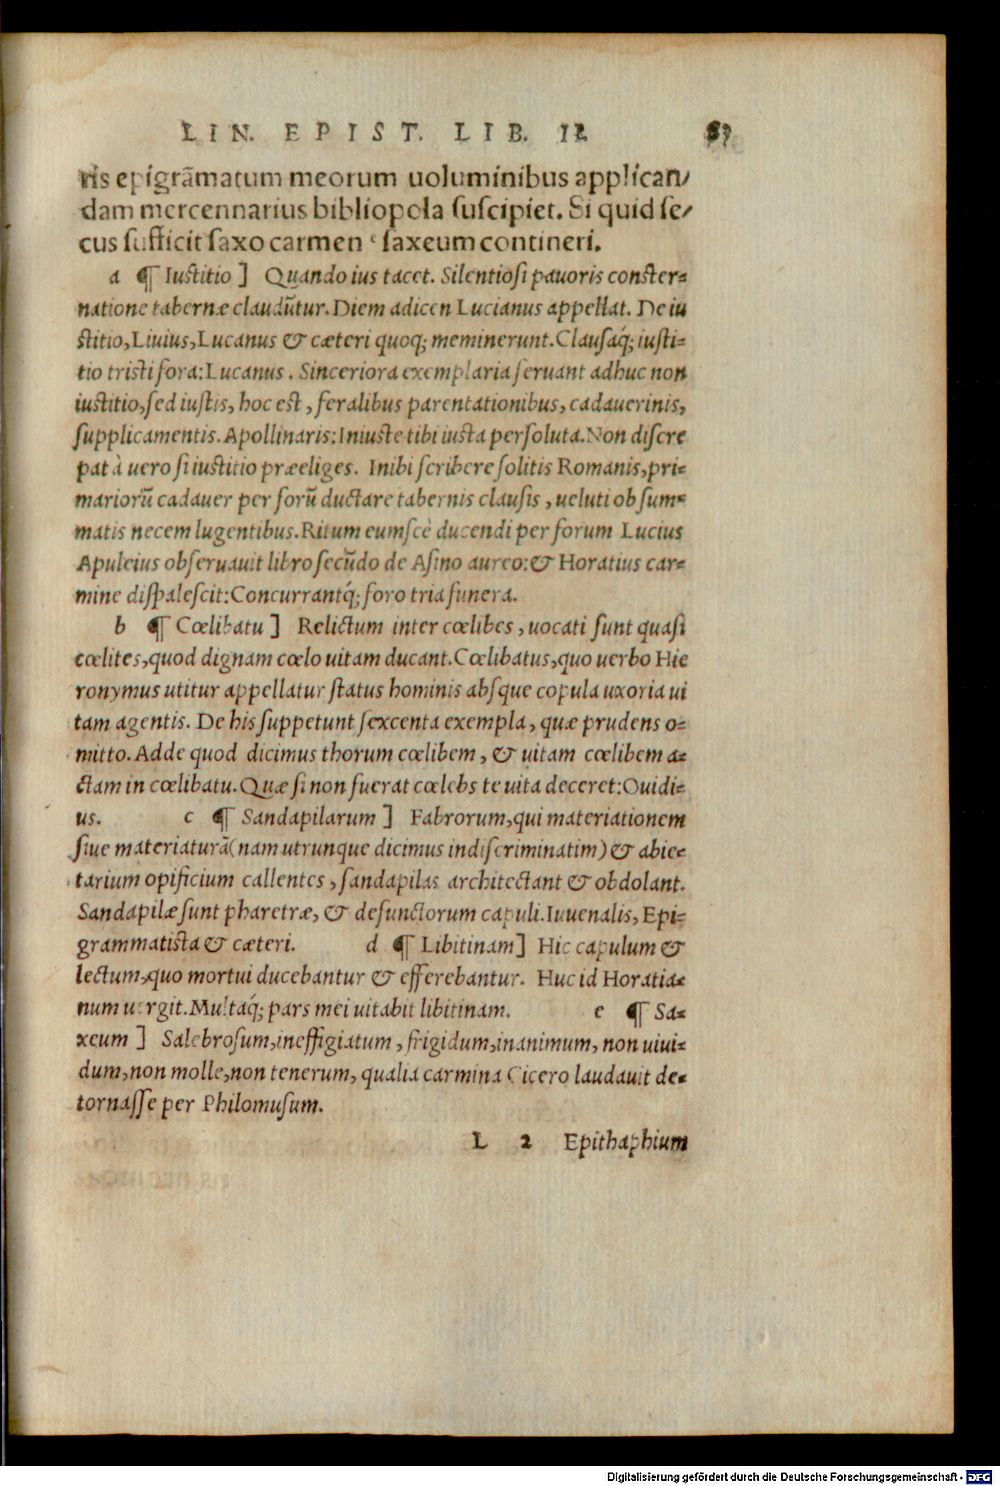 LIN. EPIST. LIB. II 83
ris epigrãmatum meorum uoluminibus applican/
dam mercennarius bibliopola suscipiet. Si quid se/
cus sufficit saxo carmen ᵉ saxeum contineri.
a ¶ Iustitio ] Quando ius tacet. Silentiosi pauoris conster-
natione tabernæ claudũtur. Diem adicen Lucianus appellat. De iu
stitio, Liuius, Lucanus & cæteri quoq; meminerunt. Clausaq́; iusti-
tio tristi fora: Lucanus. Sinceriora exemplaria seruant adhuc non
iustitio, sed iustis, hoc est, feralibus parentationibus, cadauerinis,
supplicamentis. Apollinaris: Iniuste tibi iusta persoluta. Non discre
pat à uero si iustitio præeliges. Inibi scribere solitis Romanis, pri-
mariorũ cadauer per forũ ductare tabernis clausis, ueluti ob sum-
matis necem lugentibus. Ritum eumscè ducendi per forum Lucius
Apuleius obseruauit libro secũdo de Asino aureo: & Horatius car-
mine dispalescit: Concurrantq́; foro tria funera.
b ¶ Cœlibatu ] Relictum inter cœlibes, uocati sunt quasi
cœlites, quod dignam cœlo uitam ducant. Cœlibatus, quo uerbo Hie
ronymus utitur appellatur status hominis absque copula uxoria ui
tam agentis. De his suppetunt sexcenta exempla, quæ prudens o-
mitto. Adde quod dicimus thorum cœlibem, & uitam cœlibem a-
ctam in cœlibatu. Quæ si non fuerat cœlebs te uita deceret: Ouidi-
us. c ¶ Sandapilarum ] Fabrorum, qui materiationem
siue materiaturã (nam utrunque dicimus indiscriminatim) & abie-
tarium opificium callentes, sandapilas architectant & obdolant.
Sandapilæ sunt pharetræ, & defunctorum capuli. Iuuenalis, Epi-
grammatista & cæteri. d ¶ Libitinam ] Hic capulum &
lectum, quo mortui ducebantur & efferebantur. Huc id Horatia-
num uergit. Multaq́; pars mei uitabit libitinam. e ¶ Sa-
xeum ] Salebrosum, ineffigiatum, frigidum, inanimum, non uiui-
dum, non molle, non tenerum, qualia carmina Cicero laudauit de-
tornasse per Philomusum.
L 2 Epithaphium
Digitalisierung gefördert durch die Deutsche Forschungsgemeinschaft - DFG